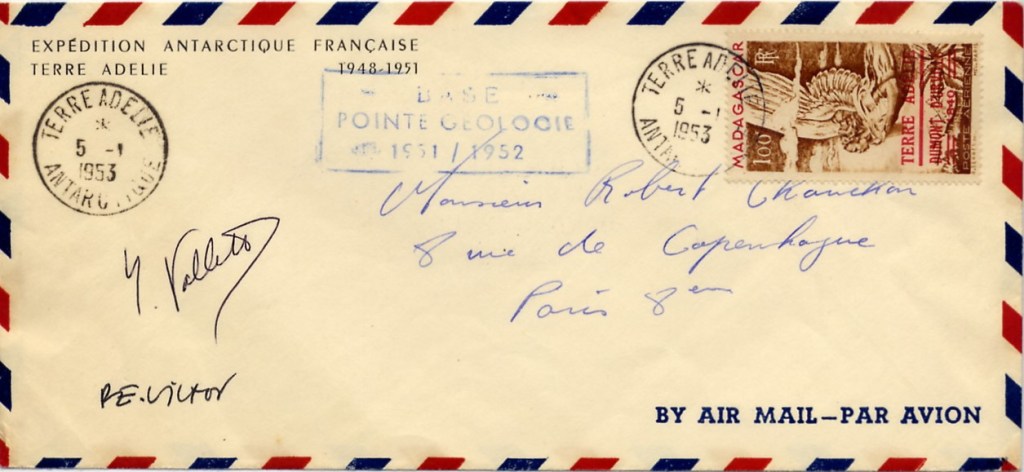 EXPÉDITION ANTARCTIQUE FRANÇAISE
TERRE ADELIE 1948-1951
TERRE ADELIE
*
5 -1
1953
ANTARCTIQUE
BASE
POINTE GEOLOGIE
1951 / 1952
TERRE ADELIE
*
5 -1
1953
ANTARCTIQUE
MADAGASCAR
RF
100F
TERRE ADÉLIE
DUMONT D'URVILLE
1840
POSTE AERIENNE
Monsieur Robert Chauchon
8 rue de Copenhague
Paris 8em
Y. Vallette
P.E. Victor
BY AIR MAIL–PAR AVION